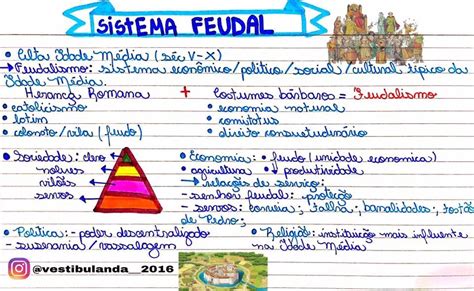 SISTEMA FEUDAL
• Alta Idade Média (séc V-X)
→ Feudalismo: sistema econômico/político/social/cultural típico da
Idade Média.
Herança Romana + Costumes bárbaros = Feudalismo
• catolicismo • economia natural
• latim • comitatus
• colonato/vila (feudo) • direito consuetudinário
• Sociedade: clero • Economia: • feudo (unidade economica)
nobres • agricultura ↓ produtividade
vilões → relações de serviço:
servos - senhor feudal: proteção
- servos: corveia; talha; banalidades; tostão
de Pedro;
• Política: - poder descentralizado • Religião: instituição mais influente
- suserania/vassalagem na Idade Média
@vestibulanda__2016